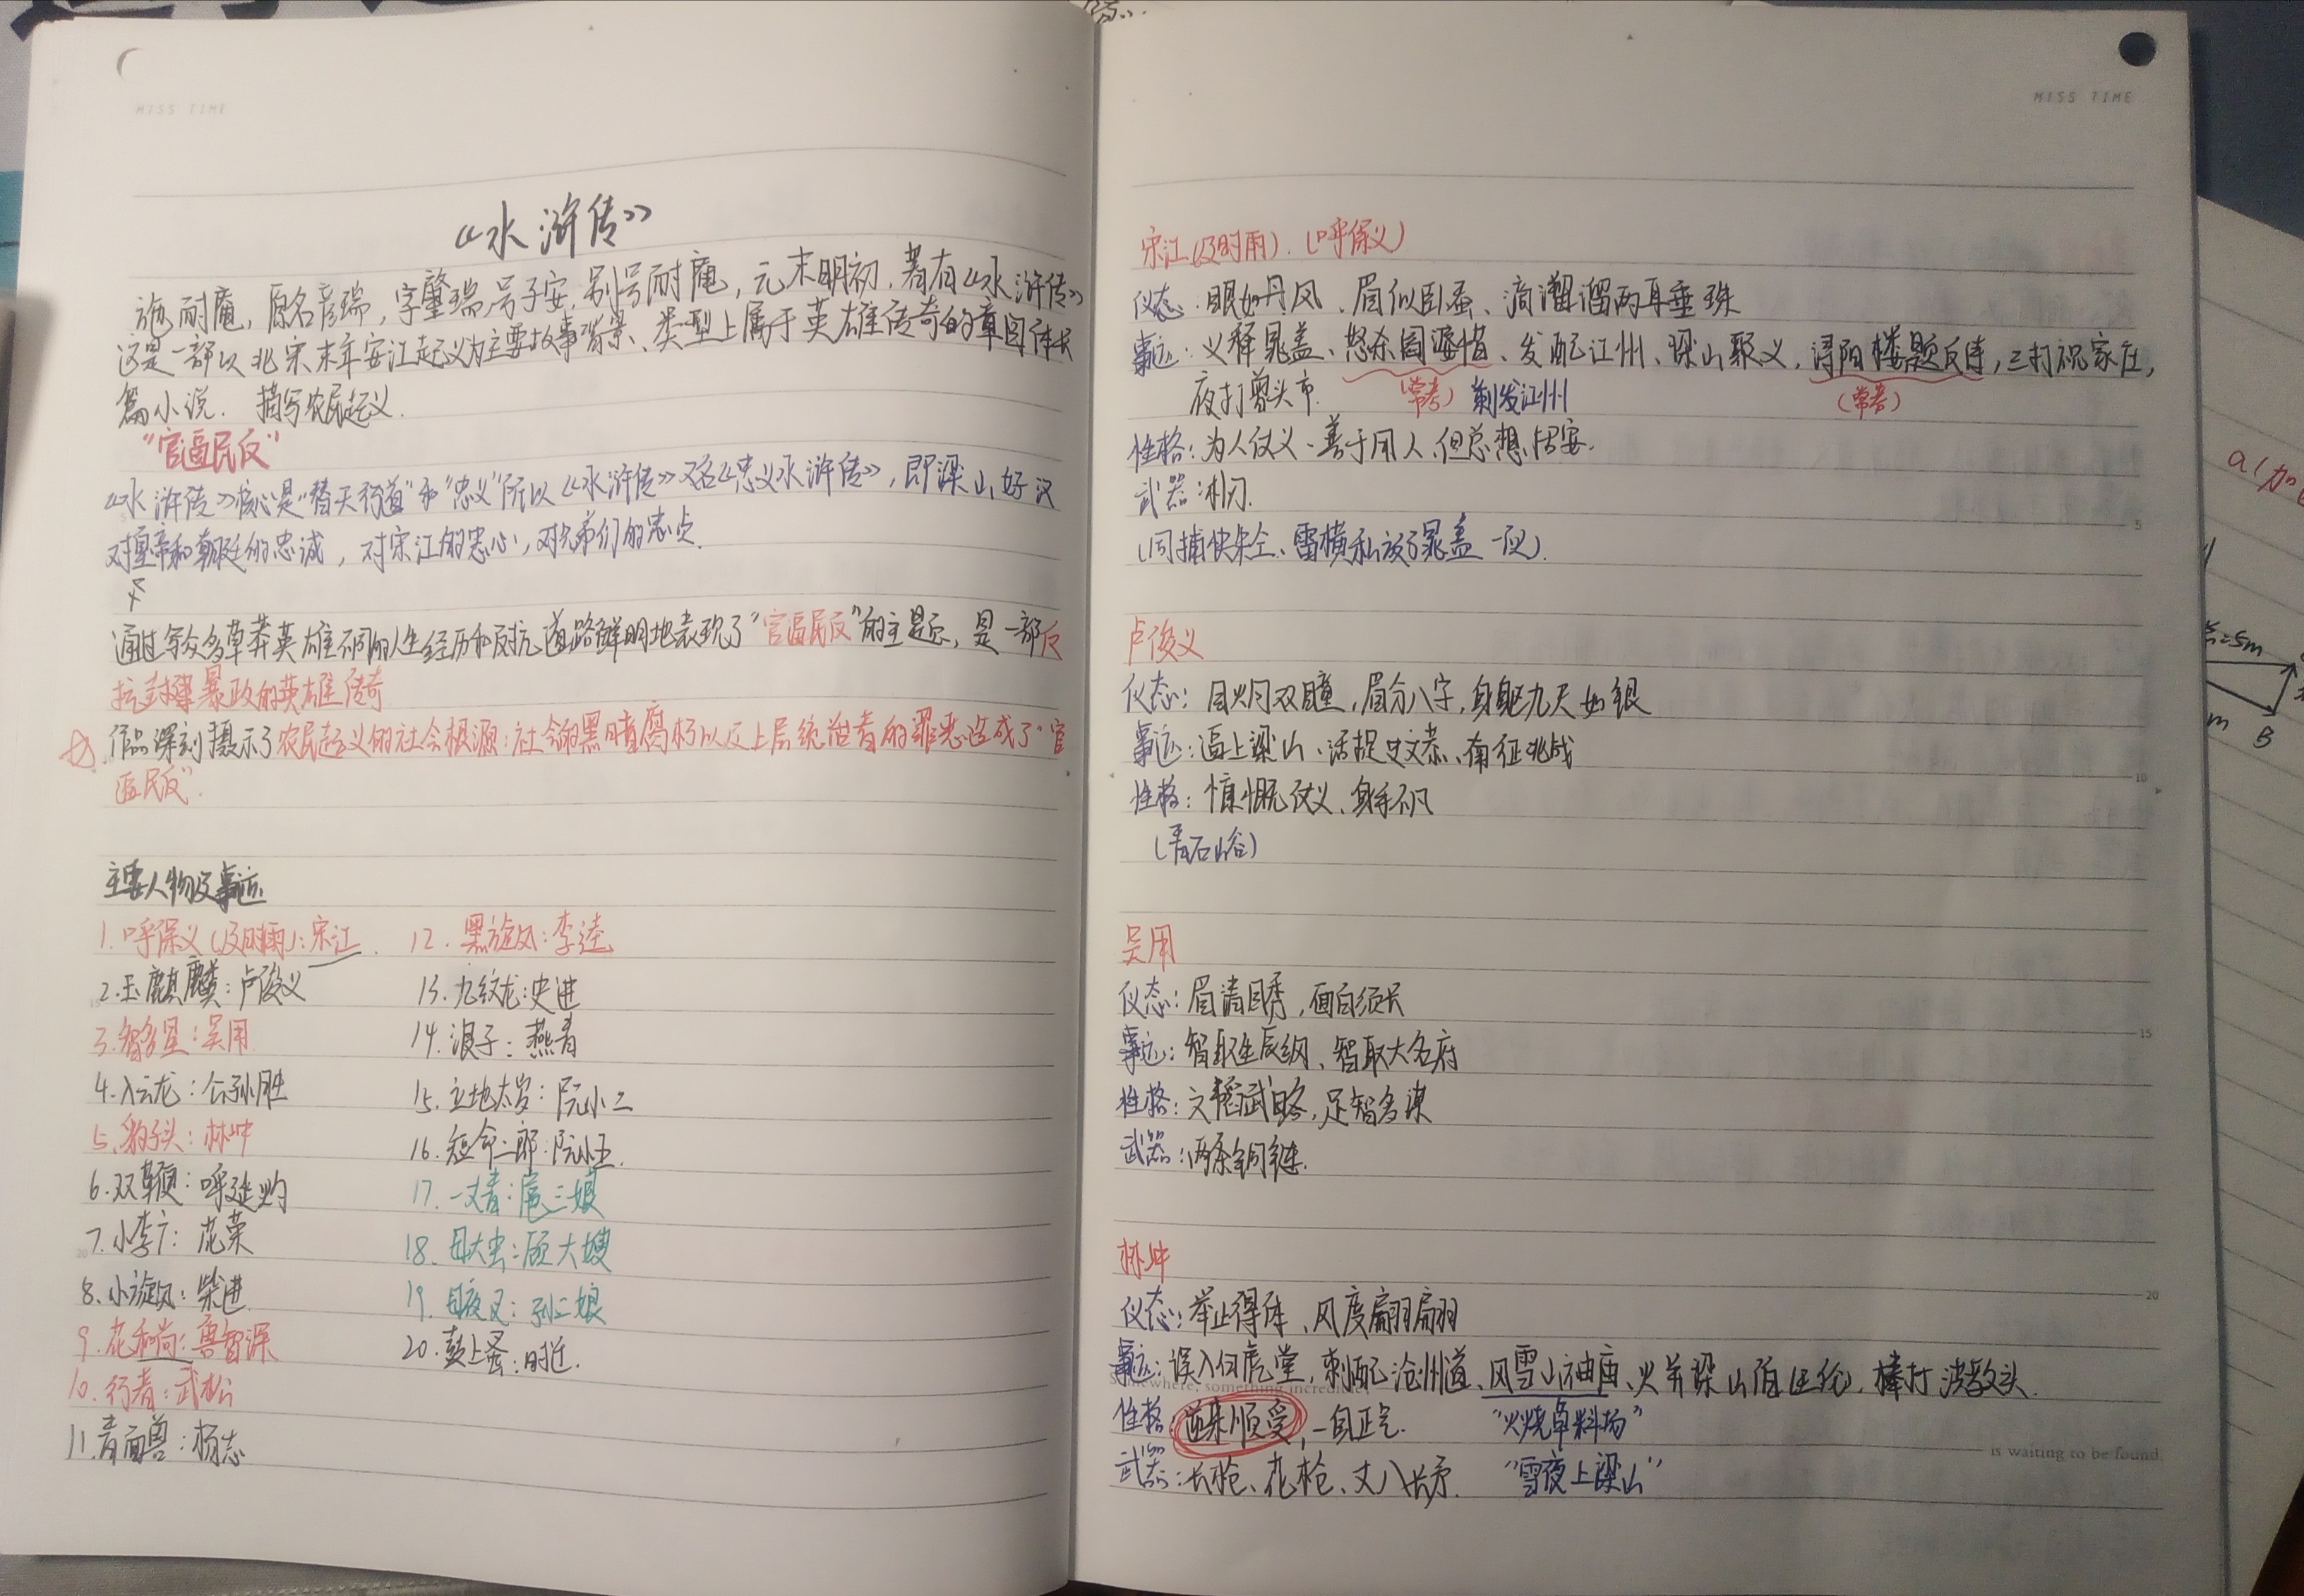 MISS TIME
《水浒传》
施耐庵，原名彦瑞，字肇瑞，号子安，别号耐庵，元末明初，著有《水浒传》
这是一部以北宋末年宋江起义为主要故事背景、类型上属于英雄传奇的章回体长
篇小说．描写农民起义．
"官逼民反"
《水浒传》核心是"替天行道"和"忠义"所以《水浒传》又名《忠义水浒传》，即梁山好汉
对皇帝和朝廷的忠诚，对宋江的忠心，对兄弟们的忠贞．
通过写众多草莽英雄不同的人生经历和反抗道路鲜明地表现了"官逼民反"的主题，是一部反
抗封建暴政的英雄传奇
作品深刻揭示了农民起义的社会根源：社会的黑暗腐朽以及上层统治者的罪恶造成了"官
逼民反"．
主要人物及事迹
1．呼保义（及时雨）：宋江．
2．玉麒麟：卢俊义
3．智多星：吴用
4．入云龙：公孙胜
5．豹子头：林冲
6．双鞭：呼延灼
7．小李广：花荣
8．小旋风：柴进
9．花和尚：鲁智深
10．行者：武松
11．青面兽：杨志
12．黑旋风：李逵
13．九纹龙：史进
14．浪子：燕青
15．立地太岁：阮小二
16．短命二郎：阮小五．
17．一丈青：扈三娘
18．母大虫：顾大嫂
19．母夜叉：孙二娘
20．鼓上蚤：时迁．
MISS TIME
宋江（及时雨）．（呼保义）
仪态：眼如丹凤、眉似卧蚕、滴溜溜两耳垂珠
事迹：义释晁盖、怒杀阎婆惜、发配江州、梁山聚义，浔阳楼题反诗，三打祝家庄，
夜打曾头市．（常考）刺发江州（常考）
性格：为人仗义、善于用人、但总想招安．
武器：朴刀．
（同捕快朱仝、雷横私放了晁盖一伙）．
卢俊义
仪态：目炯双瞳，眉分八字，身躯九尺如银
事迹：逼上梁山、活捉史文恭、南征北战
性格：慷慨仗义、身手不凡
（青石峪）
吴用
仪态：眉清目秀，面白须长
事迹：智取生辰纲、智取大名府
性格：文韬武略，足智多谋
武器：两条铜链．
林冲
仪态：举止得体、风度翩翩
事迹：误入白虎堂，刺配沧州道、风雪山神庙、火并梁山泊王伦，棒打洪教头．
性格：逆来顺受，一身正气．"火烧草料场"
武器：长枪、花枪、丈八长矛．"雪夜上梁山"
5
10
15
20
is waiting to be found.
m
B